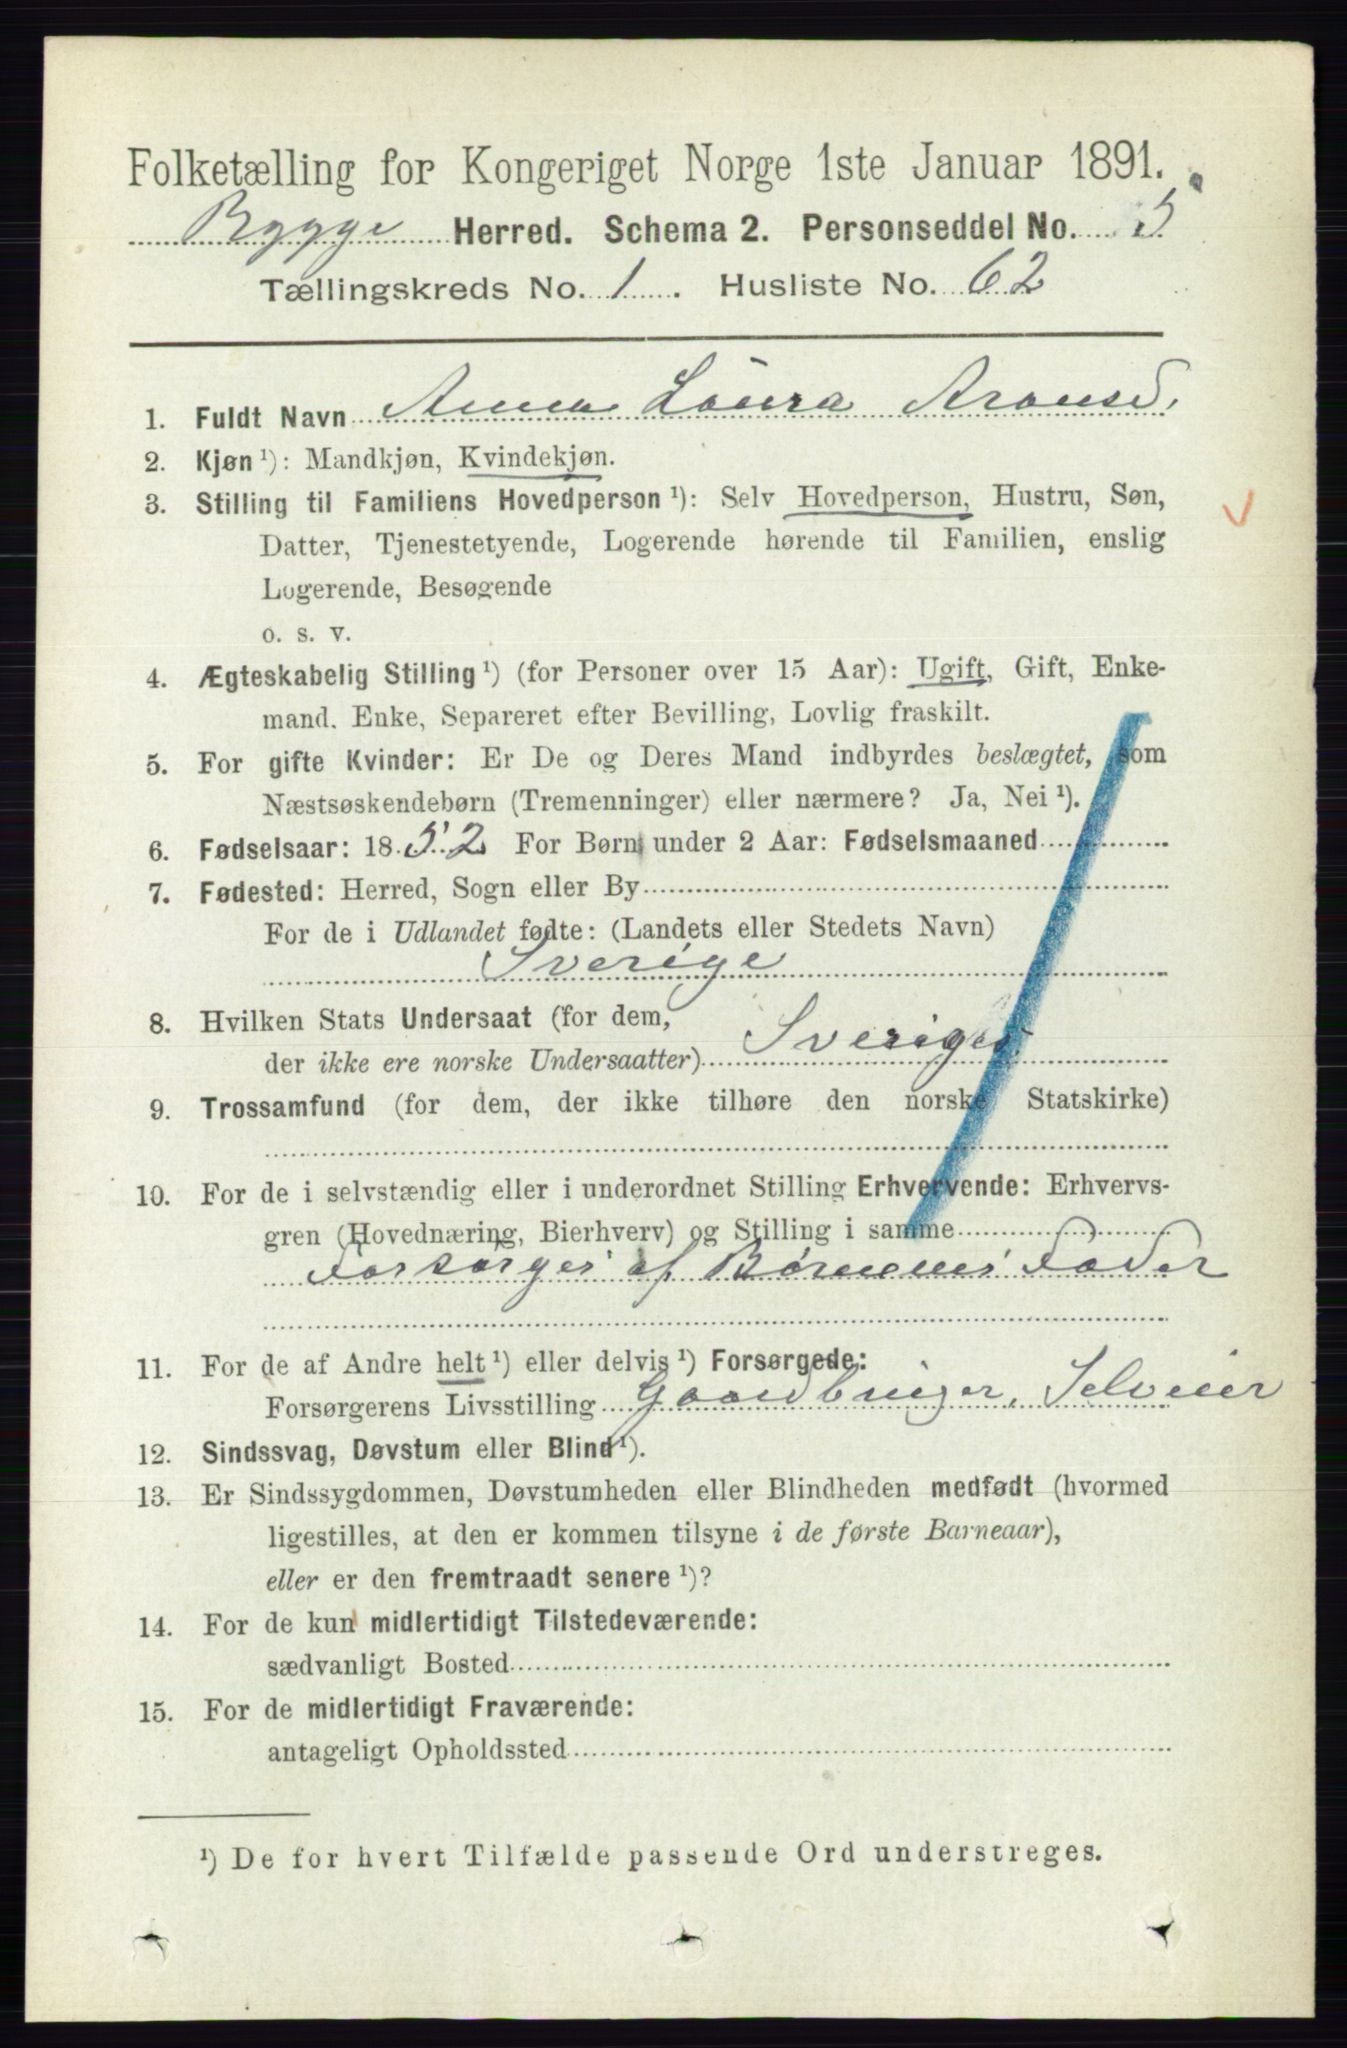 Folketælling for Kongeriget Norge 1ste Januar 1891.
Rygge Herred. Schema 2. Personseddel No. 5
Tællingskreds No. 1. Husliste No. 62
1. Fuldt Navn Anna Laura Aronsd.
2. Kjøn ¹): Mandkjøn, Kvindekjøn.
3. Stilling til Familiens Hovedperson ¹): Selv Hovedperson, Hustru, Søn,
Datter, Tjenestetyende, Logerende hørende til Familien, enslig
Logerende, Besøgende
o. s. v.
4. Ægteskabelig Stilling ¹) (for Personer over 15 Aar): Ugift, Gift, Enke-
mand. Enke, Separeret efter Bevilling, Lovlig fraskilt.
5. For gifte Kvinder: Er De og Deres Mand indbyrdes beslægtet, som
Næstsøskendebørn (Tremenninger) eller nærmere? Ja, Nei ¹).
6. Fødselsaar: 1852 For Børn under 2 Aar: Fødselsmaaned
7. Fødested: Herred, Sogn eller By
For de i Udlandet fødte: (Landets eller Stedets Navn)
Sverige
8. Hvilken Stats Undersaat (for dem,
der ikke ere norske Undersaatter) Sveriges
9. Trossamfund (for dem, der ikke tilhøre den norske Statskirke)
10. For de i selvstændig eller i underordnet Stilling Erhvervende: Erhvervs-
gren (Hovednæring, Bierhverv) og Stilling i samme
Forsørges af Børnenes Fader
11. For de af Andre helt ¹) eller delvis ¹) Forsørgede:
Forsørgerens Livsstilling Gaardbruger, Selveier
12. Sindssvag, Døvstum eller Blind ¹).
13. Er Sindssygdommen, Døvstumheden eller Blindheden medfødt (hvormed
ligestilles, at den er kommen tilsyne i de første Barneaar),
eller er den fremtraadt senere ¹)?
14. For de kun midlertidigt Tilstedeværende:
sædvanligt Bosted
15. For de midlertidigt Fraværende:
antageligt Opholdssted
¹) De for hvert Tilfælde passende Ord understreges.